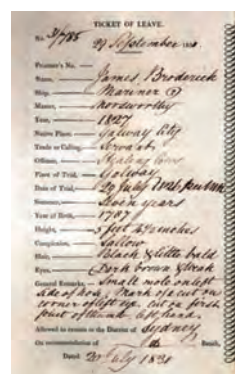 TICKET OF LEAVE.
No. 31/785
29 September 1831
Prisoner's No. —
Name, James Broderick
Ship, Mariner (2)
Master, Nordsworthy
Year, 1827
Native Place, Galway City
Trade or Calling, Servant
Offence, Stealing
Place of Trial, Galway
Date of Trial, 29 July 1826
Sentence, Seven years
Year of Birth, 1787
Height, 5 feet inches
Complexion, Sallow
Hair, Black & little bald
Eyes, Dark brown & weak
General Remarks, Small mole on left
side of nose, mark of a cut on
corner of left eye, cut on first
joint of thumb left hand
Allowed to remain in the District of Sydney
On recommendation of Bench,
Dated 20 July 1831